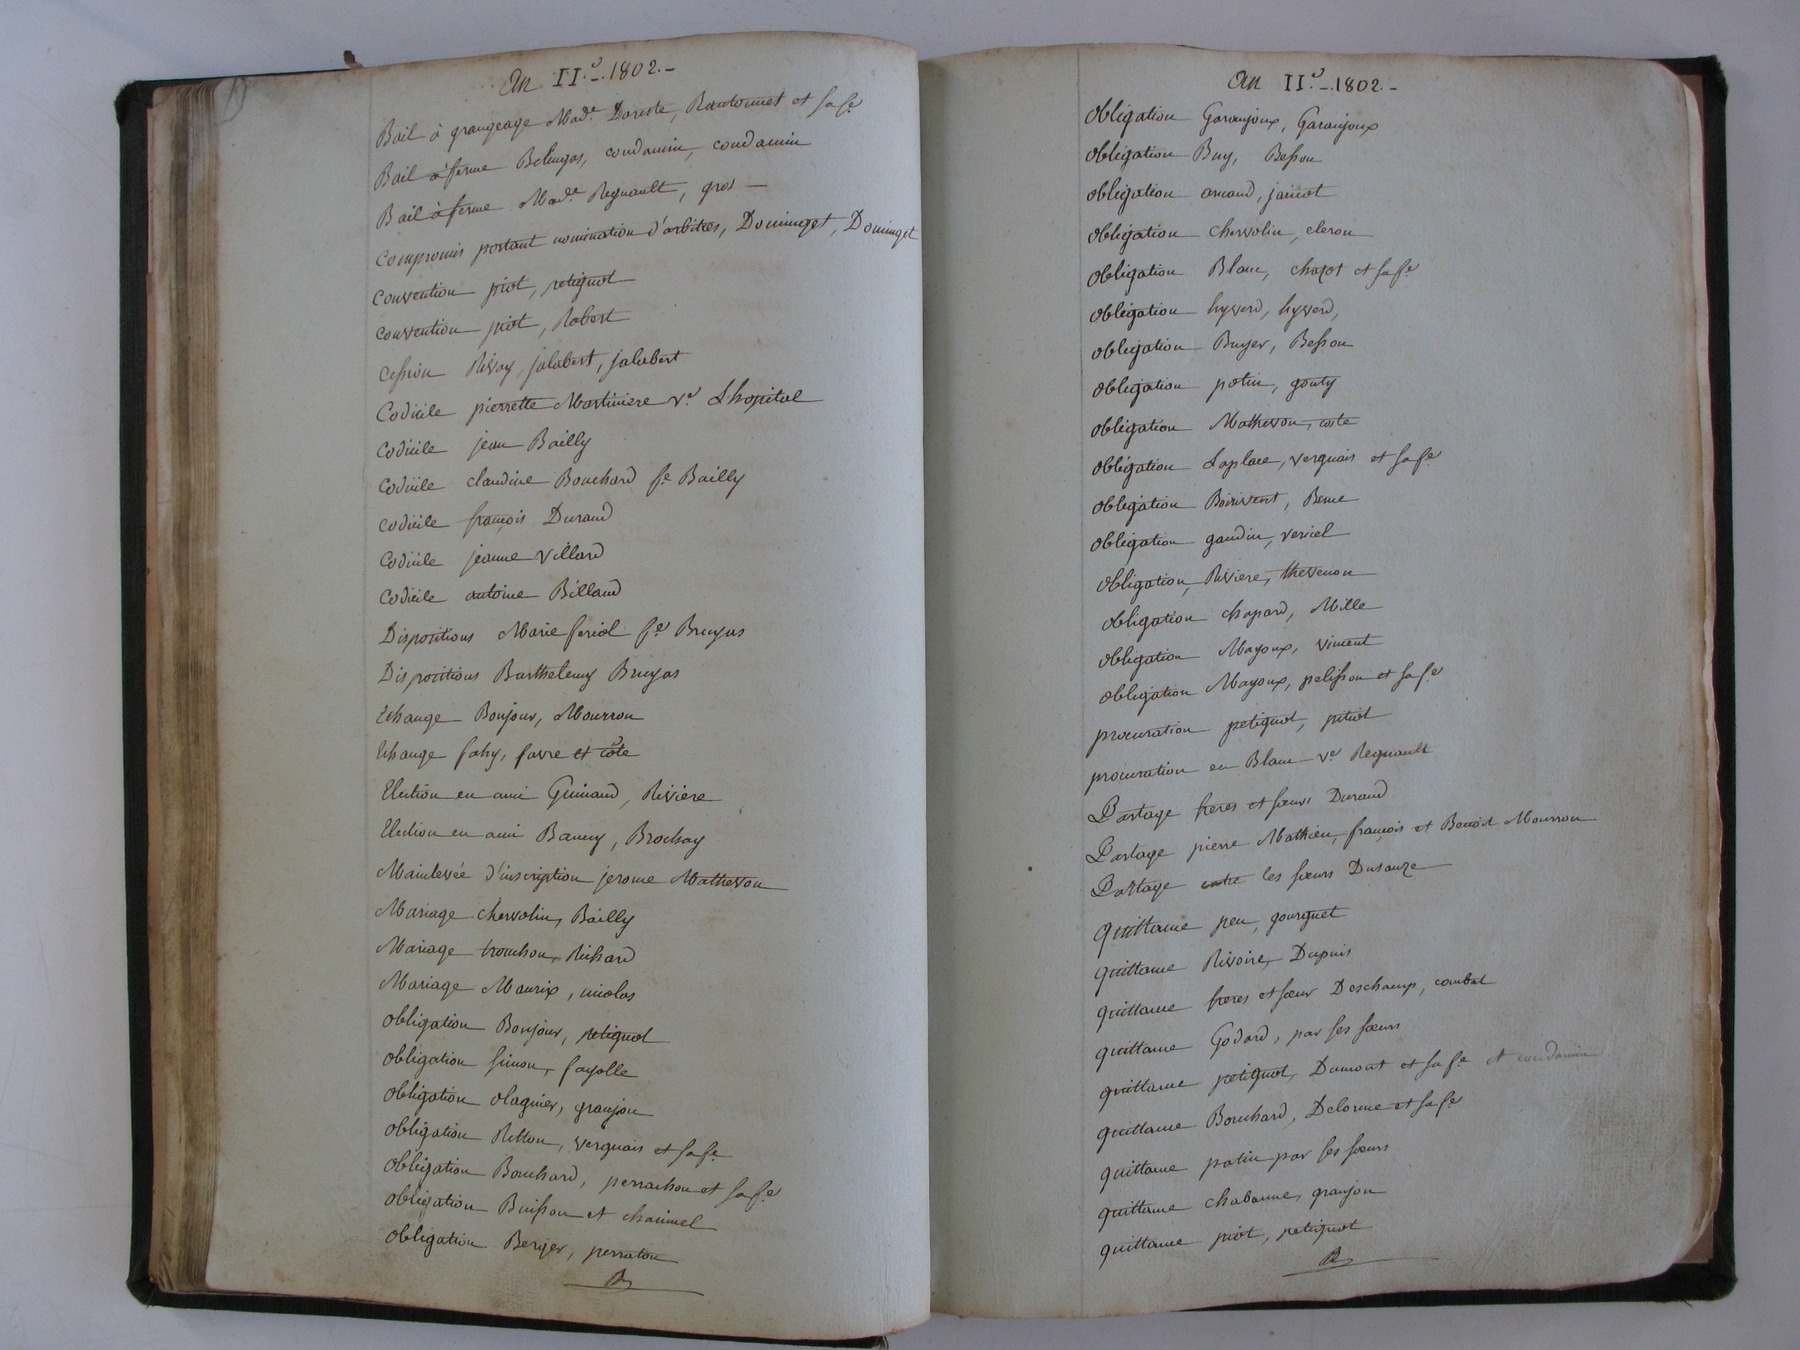 An II.e -. 1802. -
Bail à grangeage Mad.e Dareste, Rantonnet et sa f.e
Bail à ferme Belugas, condamin, condamin
Bail à ferme Mad.e Regnault, gros —
Compromis portant nomination d'arbitres, Dominget, Dominget
Convention piot, petignot
Convention piot, Robert
Cession Rivoy, jalabert, jalabert
Codicile pierrette Martiniere v.e Lhopital
Codicile jean Bailly
Codicile claudine Bouchard f.e Bailly
Codicile françois Durand
Codicile jeanne villard
Codicile antoine Billaud
Dispositions Marie feriol f.e Bruyas
Dispositions Barthelemy Bruyas
Echange Bonjour, Mourron
Echange fahy, favre et côte
Election en ami Guinand, Riviere
Election en ami Banny, Brochay
Mainlevée d'inscription jerome Mathevon
Mariage chervolin, Bailly
Mariage trouchon, Richard
Mariage Maurix, nicolas
Obligation Bonjour, petignot
Obligation simon, fayolle
Obligation olagnier, granjon
Obligation Ritton, verguais et sa f.e
Obligation Bouchard, perrachon et sa f.e
Obligation Buisson et chainel
Obligation Berger, perraton
An II.e -. 1802. -
Obligation Garanjoux, Garanjoux
Obligation Buy, Besson
Obligation arnaud, janiot
Obligation chervolin, cleron
Obligation Blanc, chazot et sa f.e
Obligation hyverd, hyverd,
Obligation Buyer, Besson
Obligation potin, gouty
Obligation Mathevon, coste
Obligation Laplace, verguais et sa f.e
Obligation Boirivent, Berne
Obligation gaudin, verriel
Obligation, Riviere, thevenon
Obligation chapard, Mille
Obligation Mayoux, vincent
Obligation Mayoux, pelisson et sa f.e
procuration petignot, pitiot
procuration en Blanc v.e Regnault
Partage freres et sœurs Durand
Partage pierre Mathieu, françois et Benoit Mourron
Partage entre les sœurs Dusauze
quittance peu, gourguet
quittance Rivoire, Dupuis
quittance freres et sœur Deschamp, combat
quittance Godard, par ses sœurs
quittance petignot, Dumont et sa f.e et condamin
quittance Bouchard, Delorme et sa f.e
quittance patin par ses sœurs
quittance chabanne, granjon
quittance piot, petignot